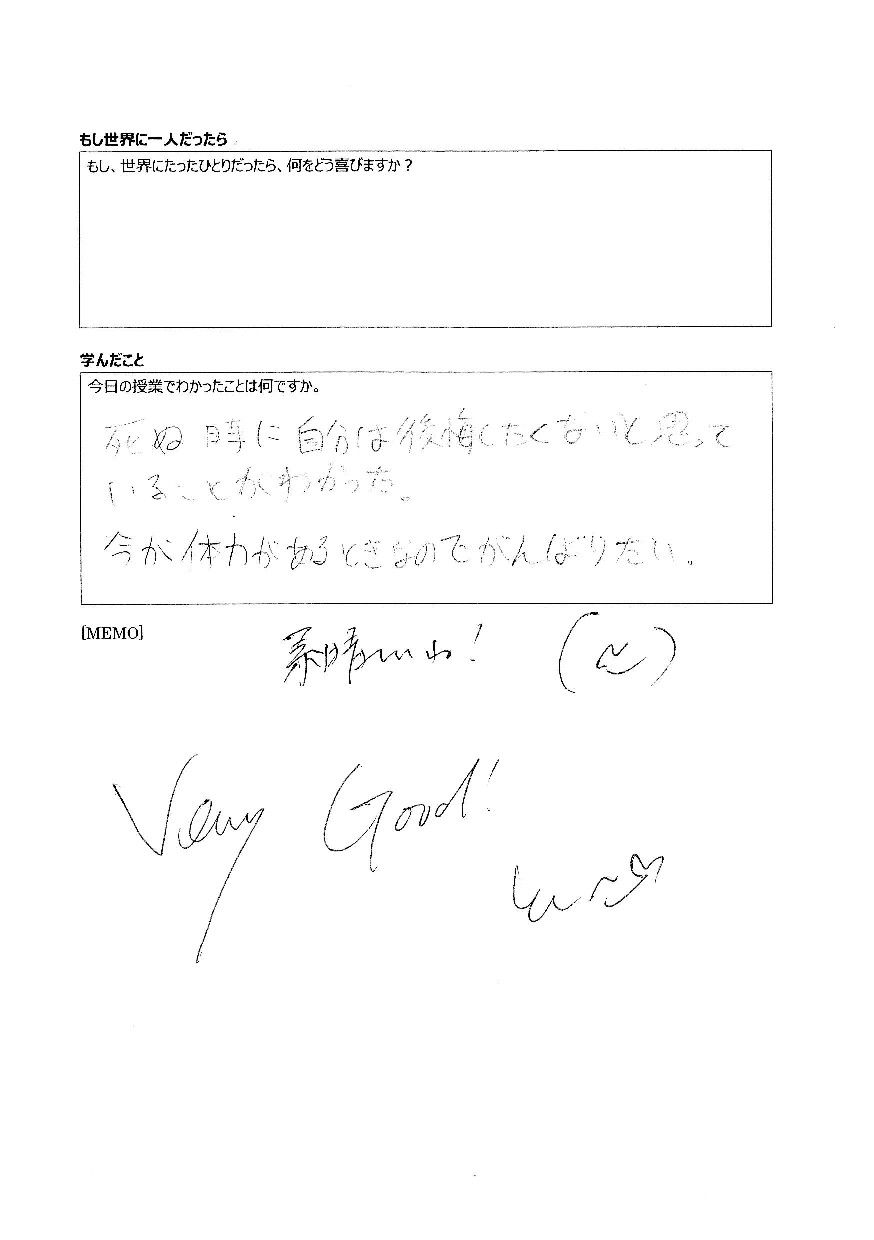 もし世界に一人だったら
もし、世界にたったひとりだったら、何をどう喜びますか？
学んだこと
今日の授業でわかったことは何ですか。
死ぬ時に自分は後悔したくないと思って
いることがわかった。
今が体力があるときなのでがんばりたい。
[MEMO]
素晴しいわ!
Very Good!